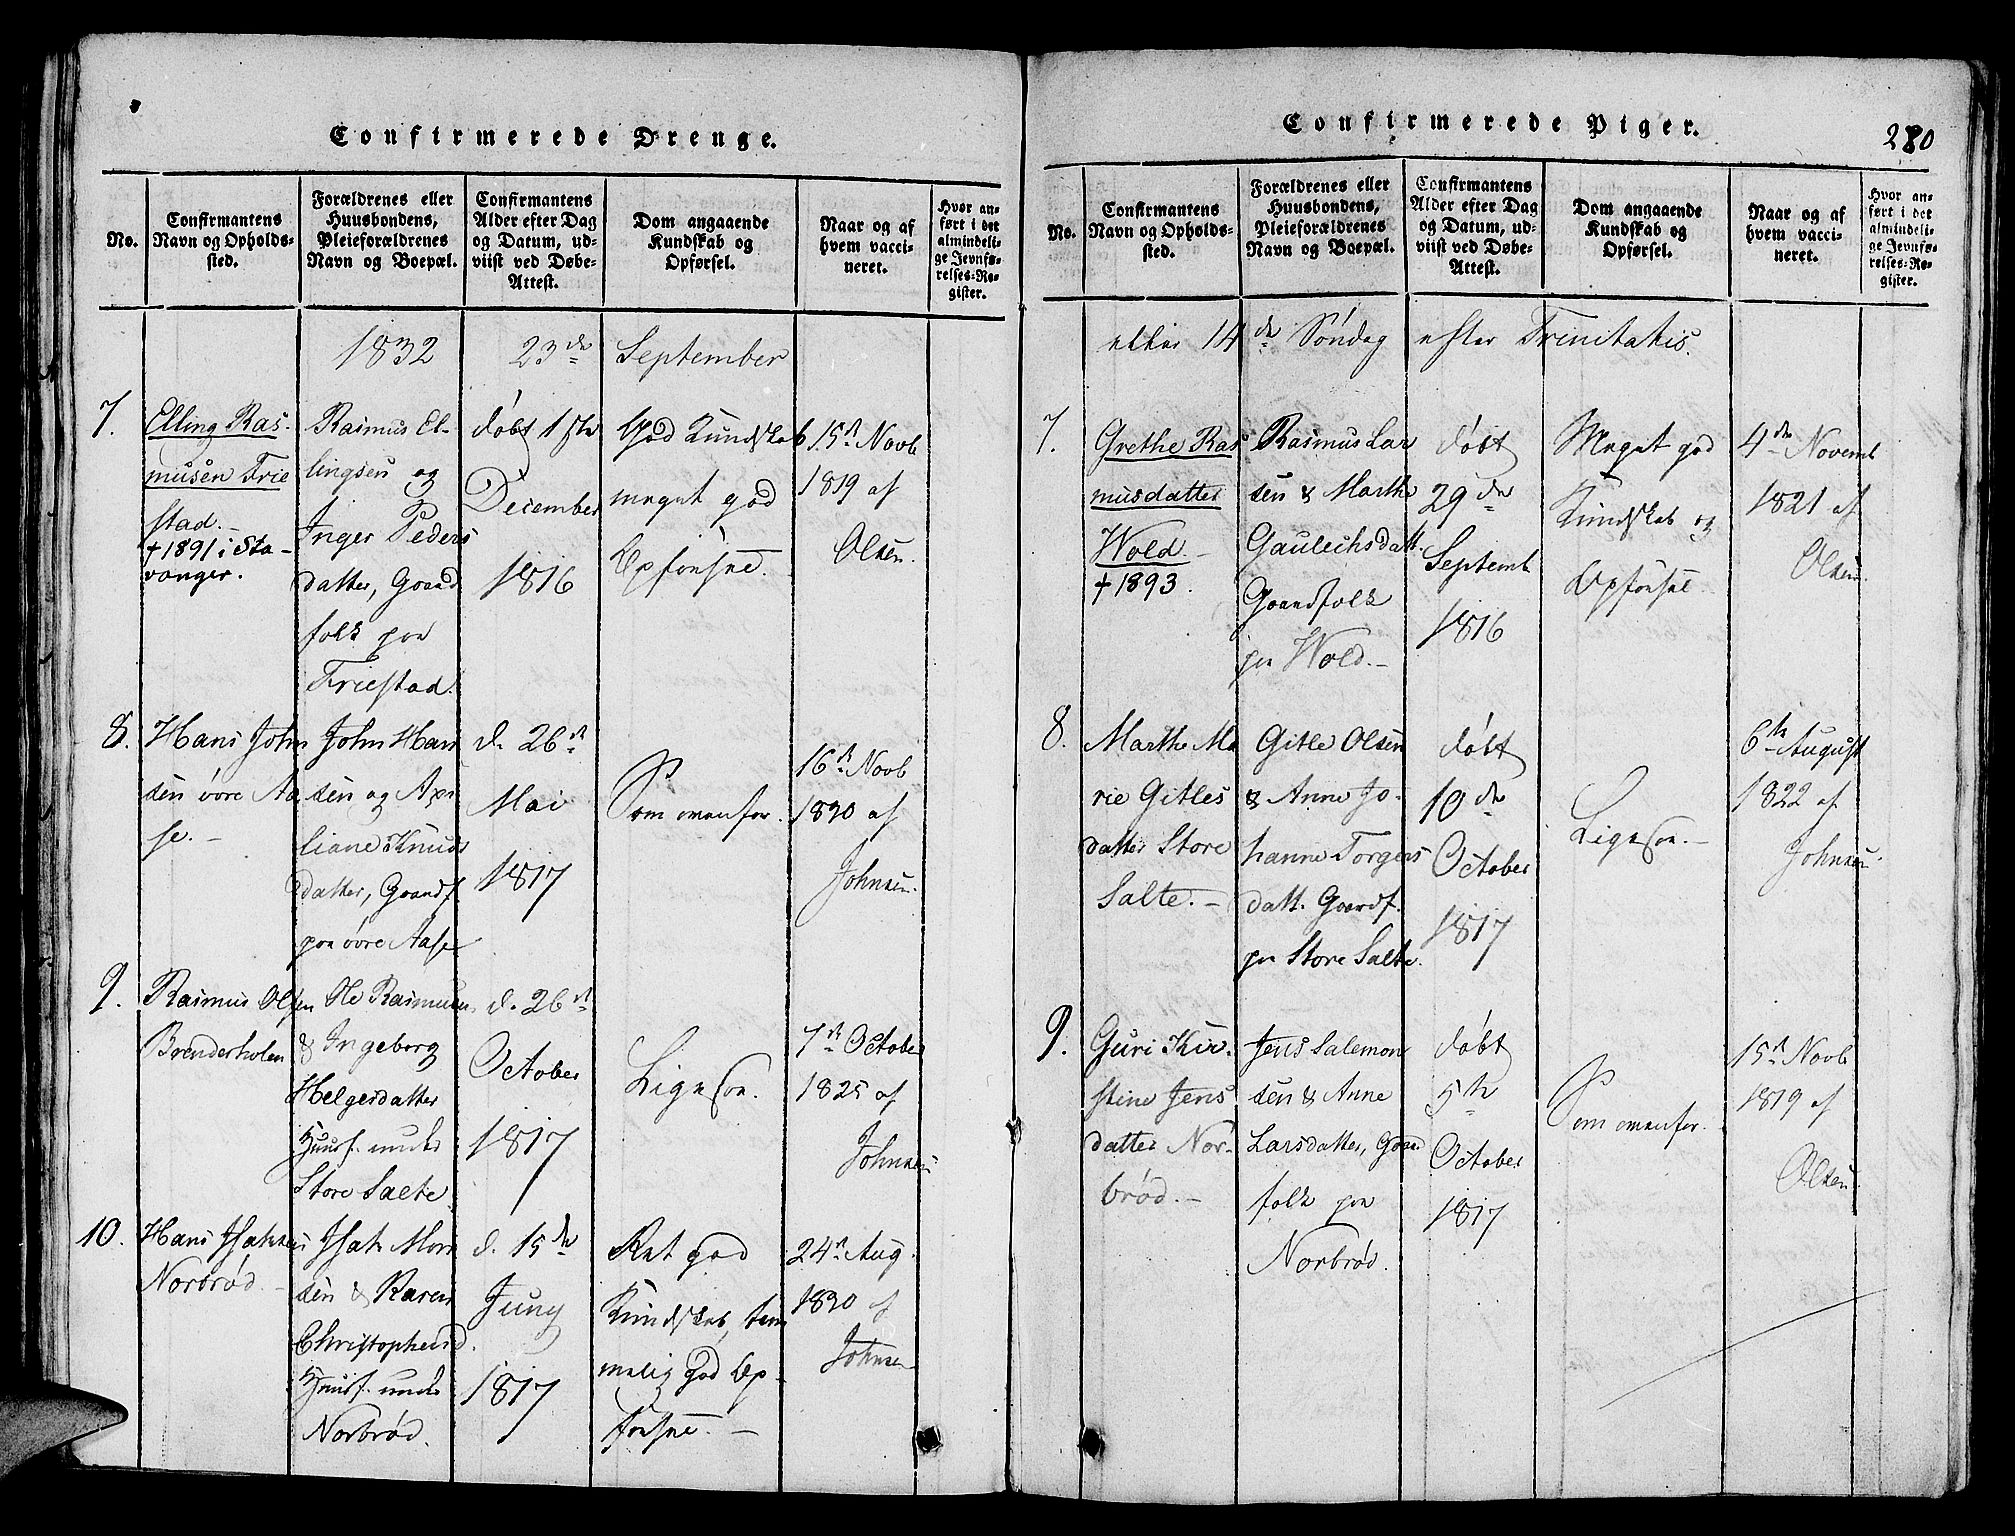 Confirmerede Drenge.
No.
Confirmantens
Navn og Opholds-
sted.
Forældrenes eller
Huusbondens,
Pleieforældrenes
Navn og Boepæl.
Confirmantens
Alder efter Dag
og Datum, ud-
viist ved Døbe-
Attest.
Dom angaaende
Kundskab og
Opførsel.
Naar og af
hvem vacci-
neret.
Hvor an-
ført i det
almindeli-
ge Jevnfø-
relses-Re-
gister.
1832 23de September
7.
Elling Ras-
musen Frie
stad.
+ 1891 i Sta-
vanger.
Rasmus El-
lingsen og
Inger Peders
datter, Gaard
folk paa
Friestad.
døbt 1ste
December
1816
God Kundskab
meget god
Opførsel.
15de Novb
1819 af
Olsen.
8.
Hans John
sen øvre Aa
se.
John Han
sen og Axe
liane Knuds
datter, Gaardf
paa øvre Aase
d. 26de
Mai
1817
Som ovenfor.
16de Novb
1820 af
Johnsen.
9.
Rasmus Olsen
Brenderholen
Ole Rasmusen
& Ingeborg
Helgesdatter
Huusf. under
Store Salte
d. 26de
October
1817
Ligesaa.
7de October
1825 af
Johnsen
10.
Hans Isaksen
Norbrød
Isak Mon
sen & Karen
Christophersd.
Huusf. under
Norbrød.
d. 15de
Juny
1817
Ret god
Kundskab, tem
melig god Op-
førsel.
24de Aug.
1820 af
Johnsen
Confirmerede Piger.
280
No.
Confirmantens
Navn og Opholds-
sted.
Forældrenes eller
Huusbondens,
Pleieforældrenes
Navn og Boepæl.
Confirmantens
Alder efter Dag
og Datum, ud-
viist ved Døbe-
Attest.
Dom angaaende
Kundskab og
Opførsel.
Naar og af
hvem vacci-
neret.
Hvor an-
ført i det
almindeli-
ge Jevnfø-
relses-Re-
gister.
eller 14de Søndag efter Trinitatis.
7.
Grethe Ras
musdatter
Wold.
+ 1893.
Rasmus Lar
sen & Marthe
Gaulechsdatt.
Gaardfolk
paa Wold.
døbt
29de
Septemb
1816
Meget god
Kundskab og
Opførsel
4de Novemb
1821 af
Olsen.
8.
Marthe Ma
rie Gitles
datter Store
Salte.
Gitle Olsen
& Anne Jo-
hanne Torgers
datt. Gaardf.
paa Store Salte.
døbt
10de
October
1817
Ligesaa.
6te August
1822 af
Johnsen.
9.
Guri Kir-
stine Jens
datter Nor-
brød.
Jens Salemon
sen & Anne
Larsdatter, Gaard
folk paa
Norbrød.
døbt
5te
October
1817
Som ovenfor.
15de Novb
1819 af
Olsen.